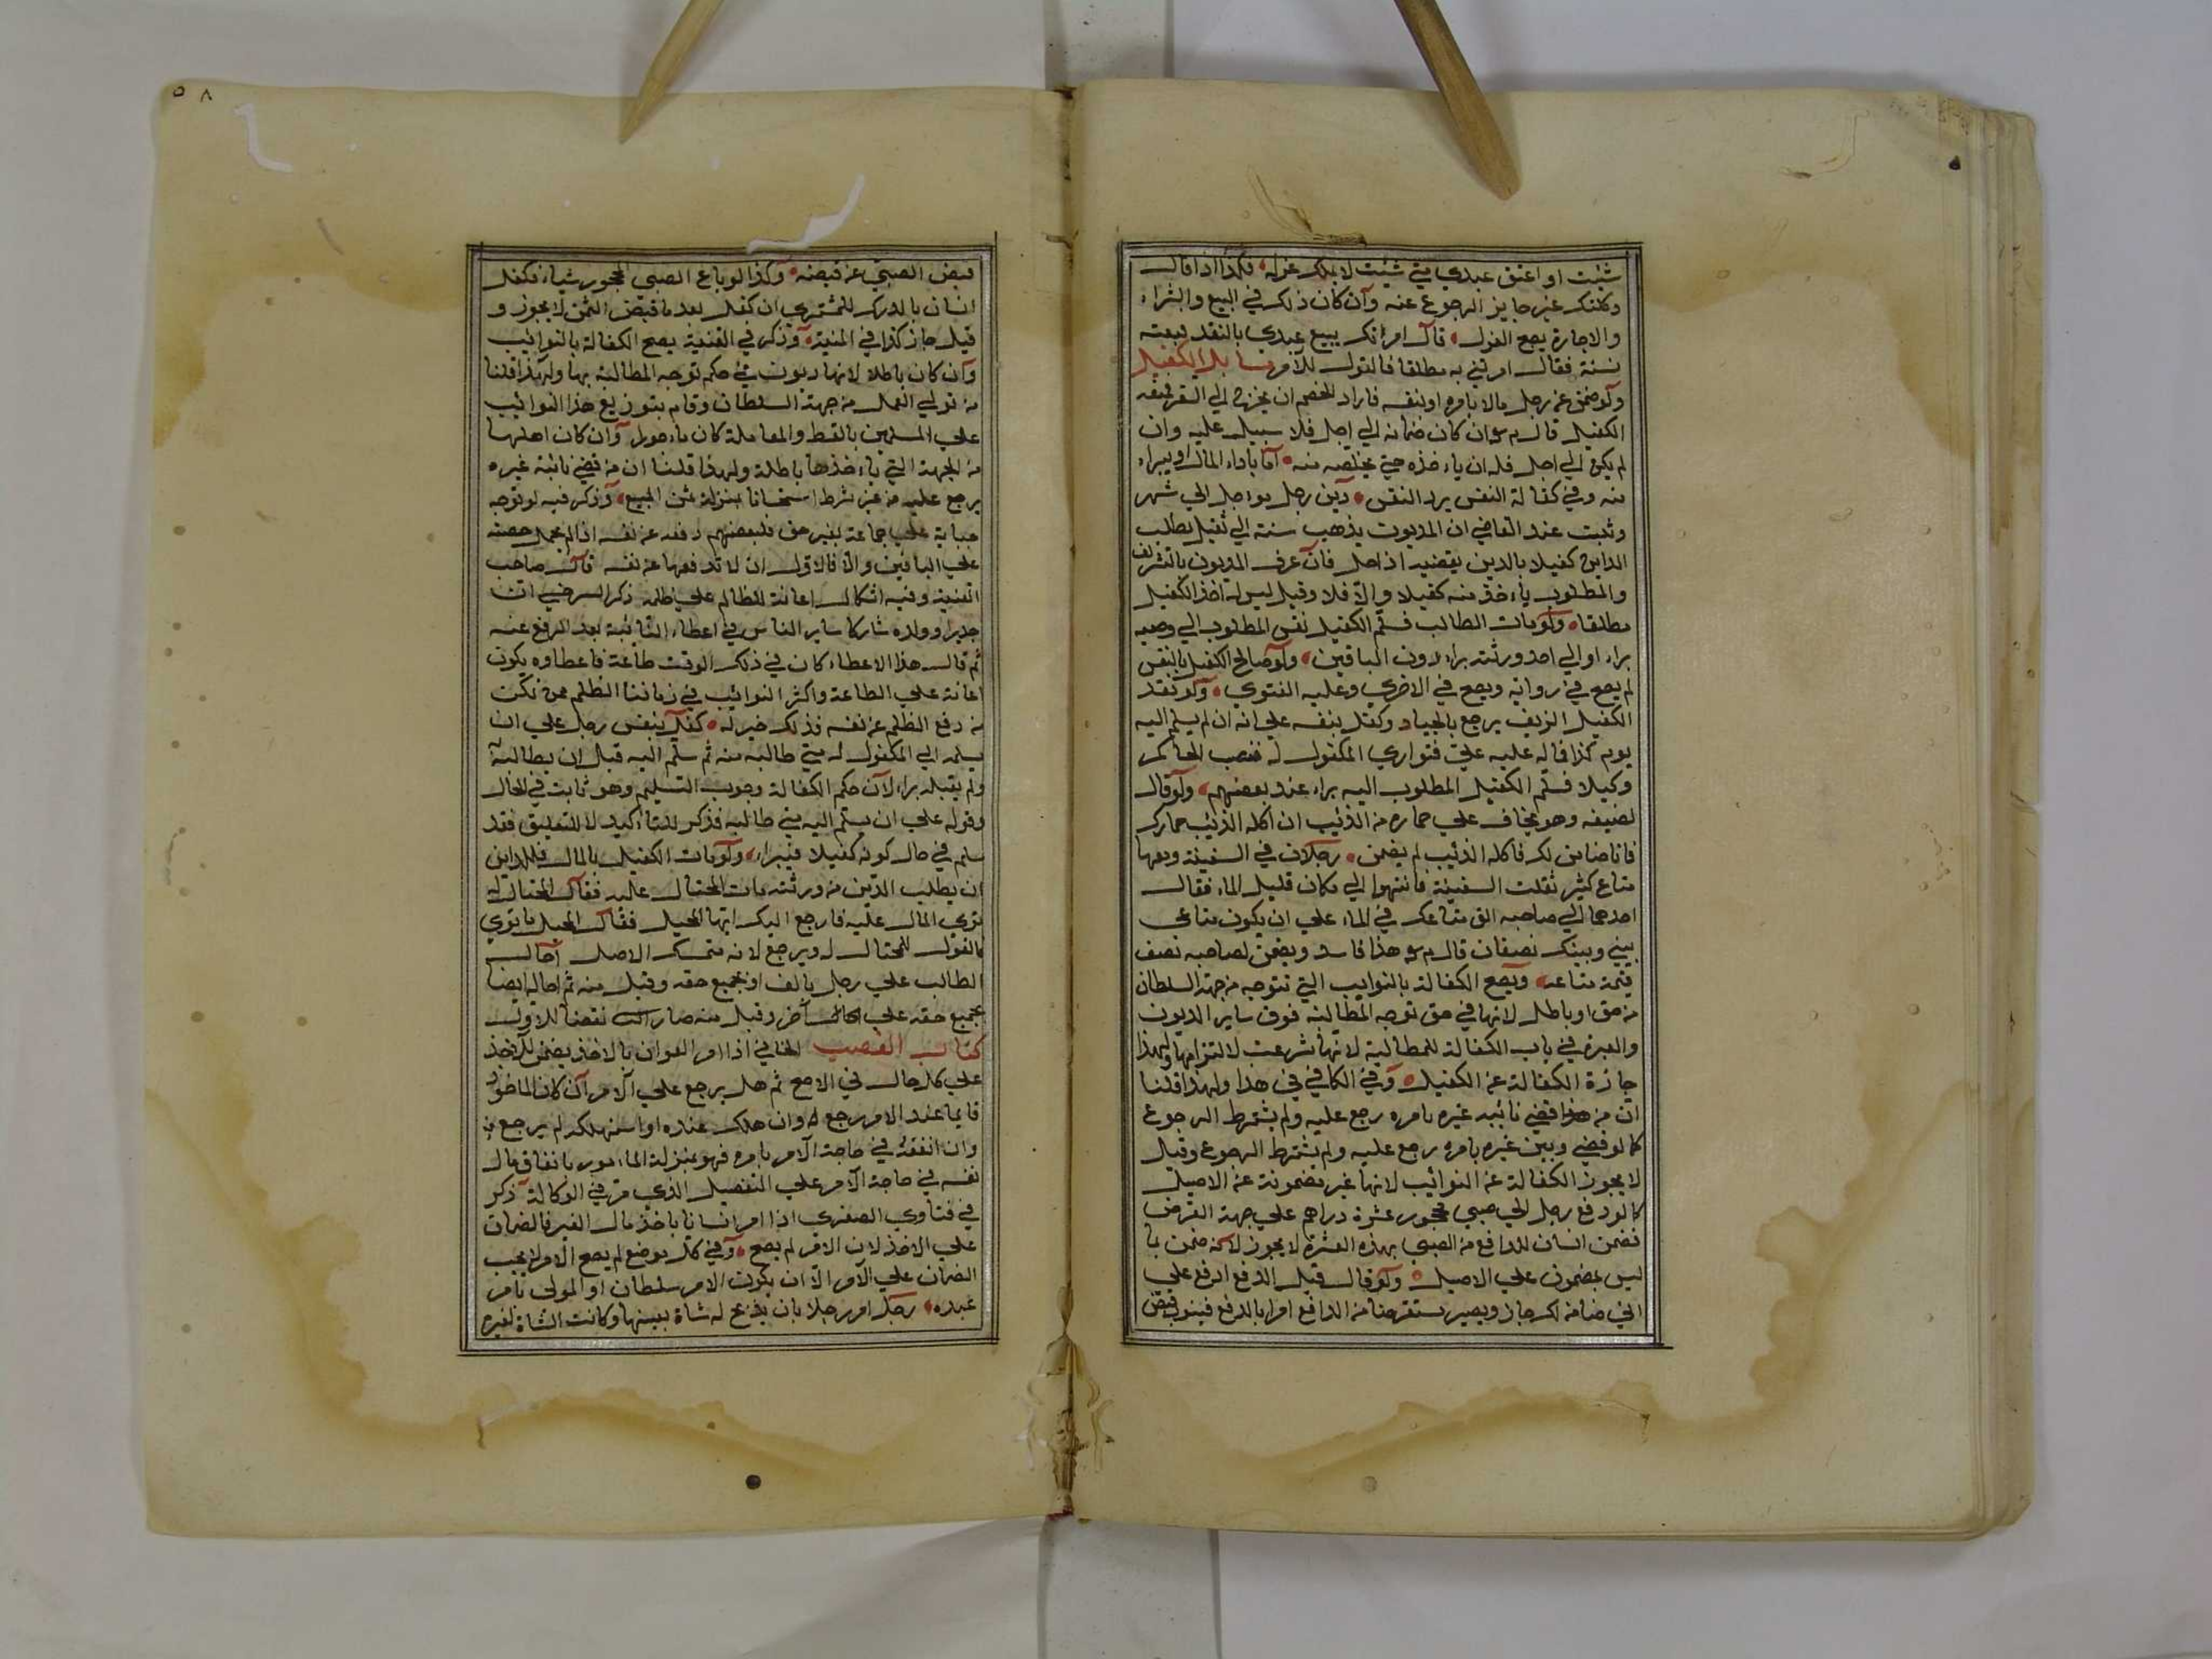 شئت او اعتق عبدي متي شئت لا يملك عزله فكذا اذا قال
وكلتك غير جايز الرجوع عنه وان كان ذلك في البيع والشراء
والاجارة يصح العزل قال امرتك ببيع عبدي بالنقد فبعته
نسئة فقال امرتني به مطلقا فالقول للآمر مسايل الكفيل
ولو ضمن عن رجل مالا بامره او نفسه فاراد الخصم ان يخرج الي السفر فمنعه
الكفيل قال م سو ان كان ضمانه الي اجل فلا سبيل عليه وان
لم يكن الي اجل فله ان ياءخذه حتي يخلصه منه اما باداء المال او ببراء
منه وفي كفالة النفس برد النفس دين رجل مؤاجل الي شهر
وثبت عند القاضي ان المديون يذهب سنة الي ثقيل يطلب
الداين كفيلا بالدين يقضيه اذا حل فان عرف المديون بالتشريف
والمطلوب ياءخذ منه كفيلا والا فلا وقيل ليس له اخذ الكفيل
مطلقا ولو مات الطالب فسلم الكفيل نفس المطلوب الي وصيه
براء او الي احد ورثته براء دون الباقين ولو صالح الكفيل بالنفس
لم يصح في رواية ويصح في الاخري وعليه الفتوي ولو نقد
الكفيل الزيف يرجع بالجياد وكفل بنفسه علي انه ان لم يسلم اليه
يوم كذا فماله عليه علي فتواري المكفول له فنصب الحاكم
وكيلا فسلم الكفيل المطلوب اليه براء عند بعضهم ولو قال
لضيفه وهو يخاف علي حماره من الذئيب ان اكله الذئيب حمارك
فانا ضامن لك فاكله الذئيب لم يضمن رجلان في السفينة ومعها
متاع كثير ثقلت السفينة فانتهوا الي مكان قليل الماء فقال
احدهما الي صاحبه الق متاعك في الماء علي ان يكون متاعي
بيني وبينك نصفان قال م سو هذا فاسد ويضمن لصاحبه نصف
قيمة متاعه ويصح الكفالة بالنوايب التي تتوجه من جهة السلطان
من حق او باطل لانها في حق توجه المطالبة فوق ساير الديون
والعبرة في باب الكفالة للمطالبة لانها شرعت لالتزامها ولهذا
جازة الكفالة عن الكفيل وفي الكافي في هذا ولهذا قلنا
ان من هذا قضي نائبه غيره بامره رجع عليه ولم يشترط الرجوع
كما لو قضي وبين غيره بامره رجع عليه ولم يشترط الرجوع وقيل
لا يجوز الكفالة عن النوائيب لانها غير مضمونة عن الاصيل
كما لو دفع رجل الي صبي محجور عشرة دراهم علي جهة القرض
فضمن انسان للدافع من الصبي بهذه العشرة لا يجوز لانه ضمن بما
ليس بمضمون علي الاصيل ولو قال قبل الدفع ادفع علي
اني ضامن لك جاز ويصير مستقرضا من الدافع امرا بالدفع فينوب قبض
قبض الصبي عن قبضه وكذا لو باع الصبي المحجور شياء فكفل
انسان بالدرك للمشتري ان كفل بعد ما قبض الثمن لا يجوز و
قيل جاز كذا في المنية وذكر في القنية يصح الكفالة بالنوائيب
وان كان باطلا لانها ديون في حكم توجه المطالبة بها ولهذا قلنا
من تولي العمل من جهة السلطان وقام بتوزيع هذا النوائيب
علي المسلمين بالقسط والمعاملة كان ماءجورا وان كان اهلها
من الجهة التي ياءخذها باطلة ولهذا قلنا ان من قضي نائبة غيره
يرجع عليه من غير شرط استحسانا بمنزلة ثمن المبيع وذكر فيه لو توجه
جباية علي جماعة بغير حق فلبعضهم دفعه عن نفسه اذا لم يحمل حصته
علي الباقين والا فالاولي ان لا تدفعها عن نفسه قال صاحب
القنية وفيه اشكال اعانة للظالم علي ظلمه ذكر السرخسي ان
جدير وولده شاركا ساير الناس في اعطاء النائبة بعد الدفع عنه
ثم قال هذا الاعطاء كان في ذلك الوقت طاعة فاعطاوه يكون
اعانة علي الطاعة واكثر النوائيب في زماننا الظلم فمن تمكن
من دفع الظلم عن نفسه فذلك خير له كفل بنفس رجل علي ان
يسلمه الي المكفول له متي طالبه منه ثم سلم اليه قبل ان يطالبه
ولم يقبله براء لان حكم الكفالة وجوب التسليم وهو ثابت في الحال
وقوله علي ان يسلم اليه متي طالبه فذكر للتاءكيد لا للتعليق فقد
سلم في حال كونه كفيلا فيبراء ولو مات الكفيل بالمال فللداين
ان يطلب الدين من ورثته مات المحتال عليه فقال المحتال له
توي المال عليه فارجع اليك ايها المحيل فقال المحيل ما توي
فالقول للمحتال له ويرجع لانه متمسك الاصل احال
الطالب علي رجل بالف او بجميع حقه وقبل منه ثم احاله ايضا
بجميع حقه علي اخر وقبل منه صار الثاني نقضا للاول
كتاب الغصب الخاني اذا امر العوان بالاخذ يضمن الاخذ
علي كل حال في الاصح ثم هل يرجع علي الآمر ان كان الماخوذ
قايما عند الامر رجع له وان هلك عنده او استهلكه لم يرجع
وان انفقه في حاجة الآمر بامره فهو بمنزلة الماءمور بانفاق مال
نفسه في حاجة الآمر علي التفصيل الذي مر في الوكالة ذكر
في فتاوي الصغري اذا امر انسانا باخذ مال الغير فالضمان
علي الاخذ لان الامر لم يصح وفي كل موضع لم يصح الامر لا يجب
الضمان علي الآمر الا ان يكون الامر سلطان او المولي بامر
عبده رجل امر رجلا بان يذبح له شاة بعينها وكانت الشاة لغيره